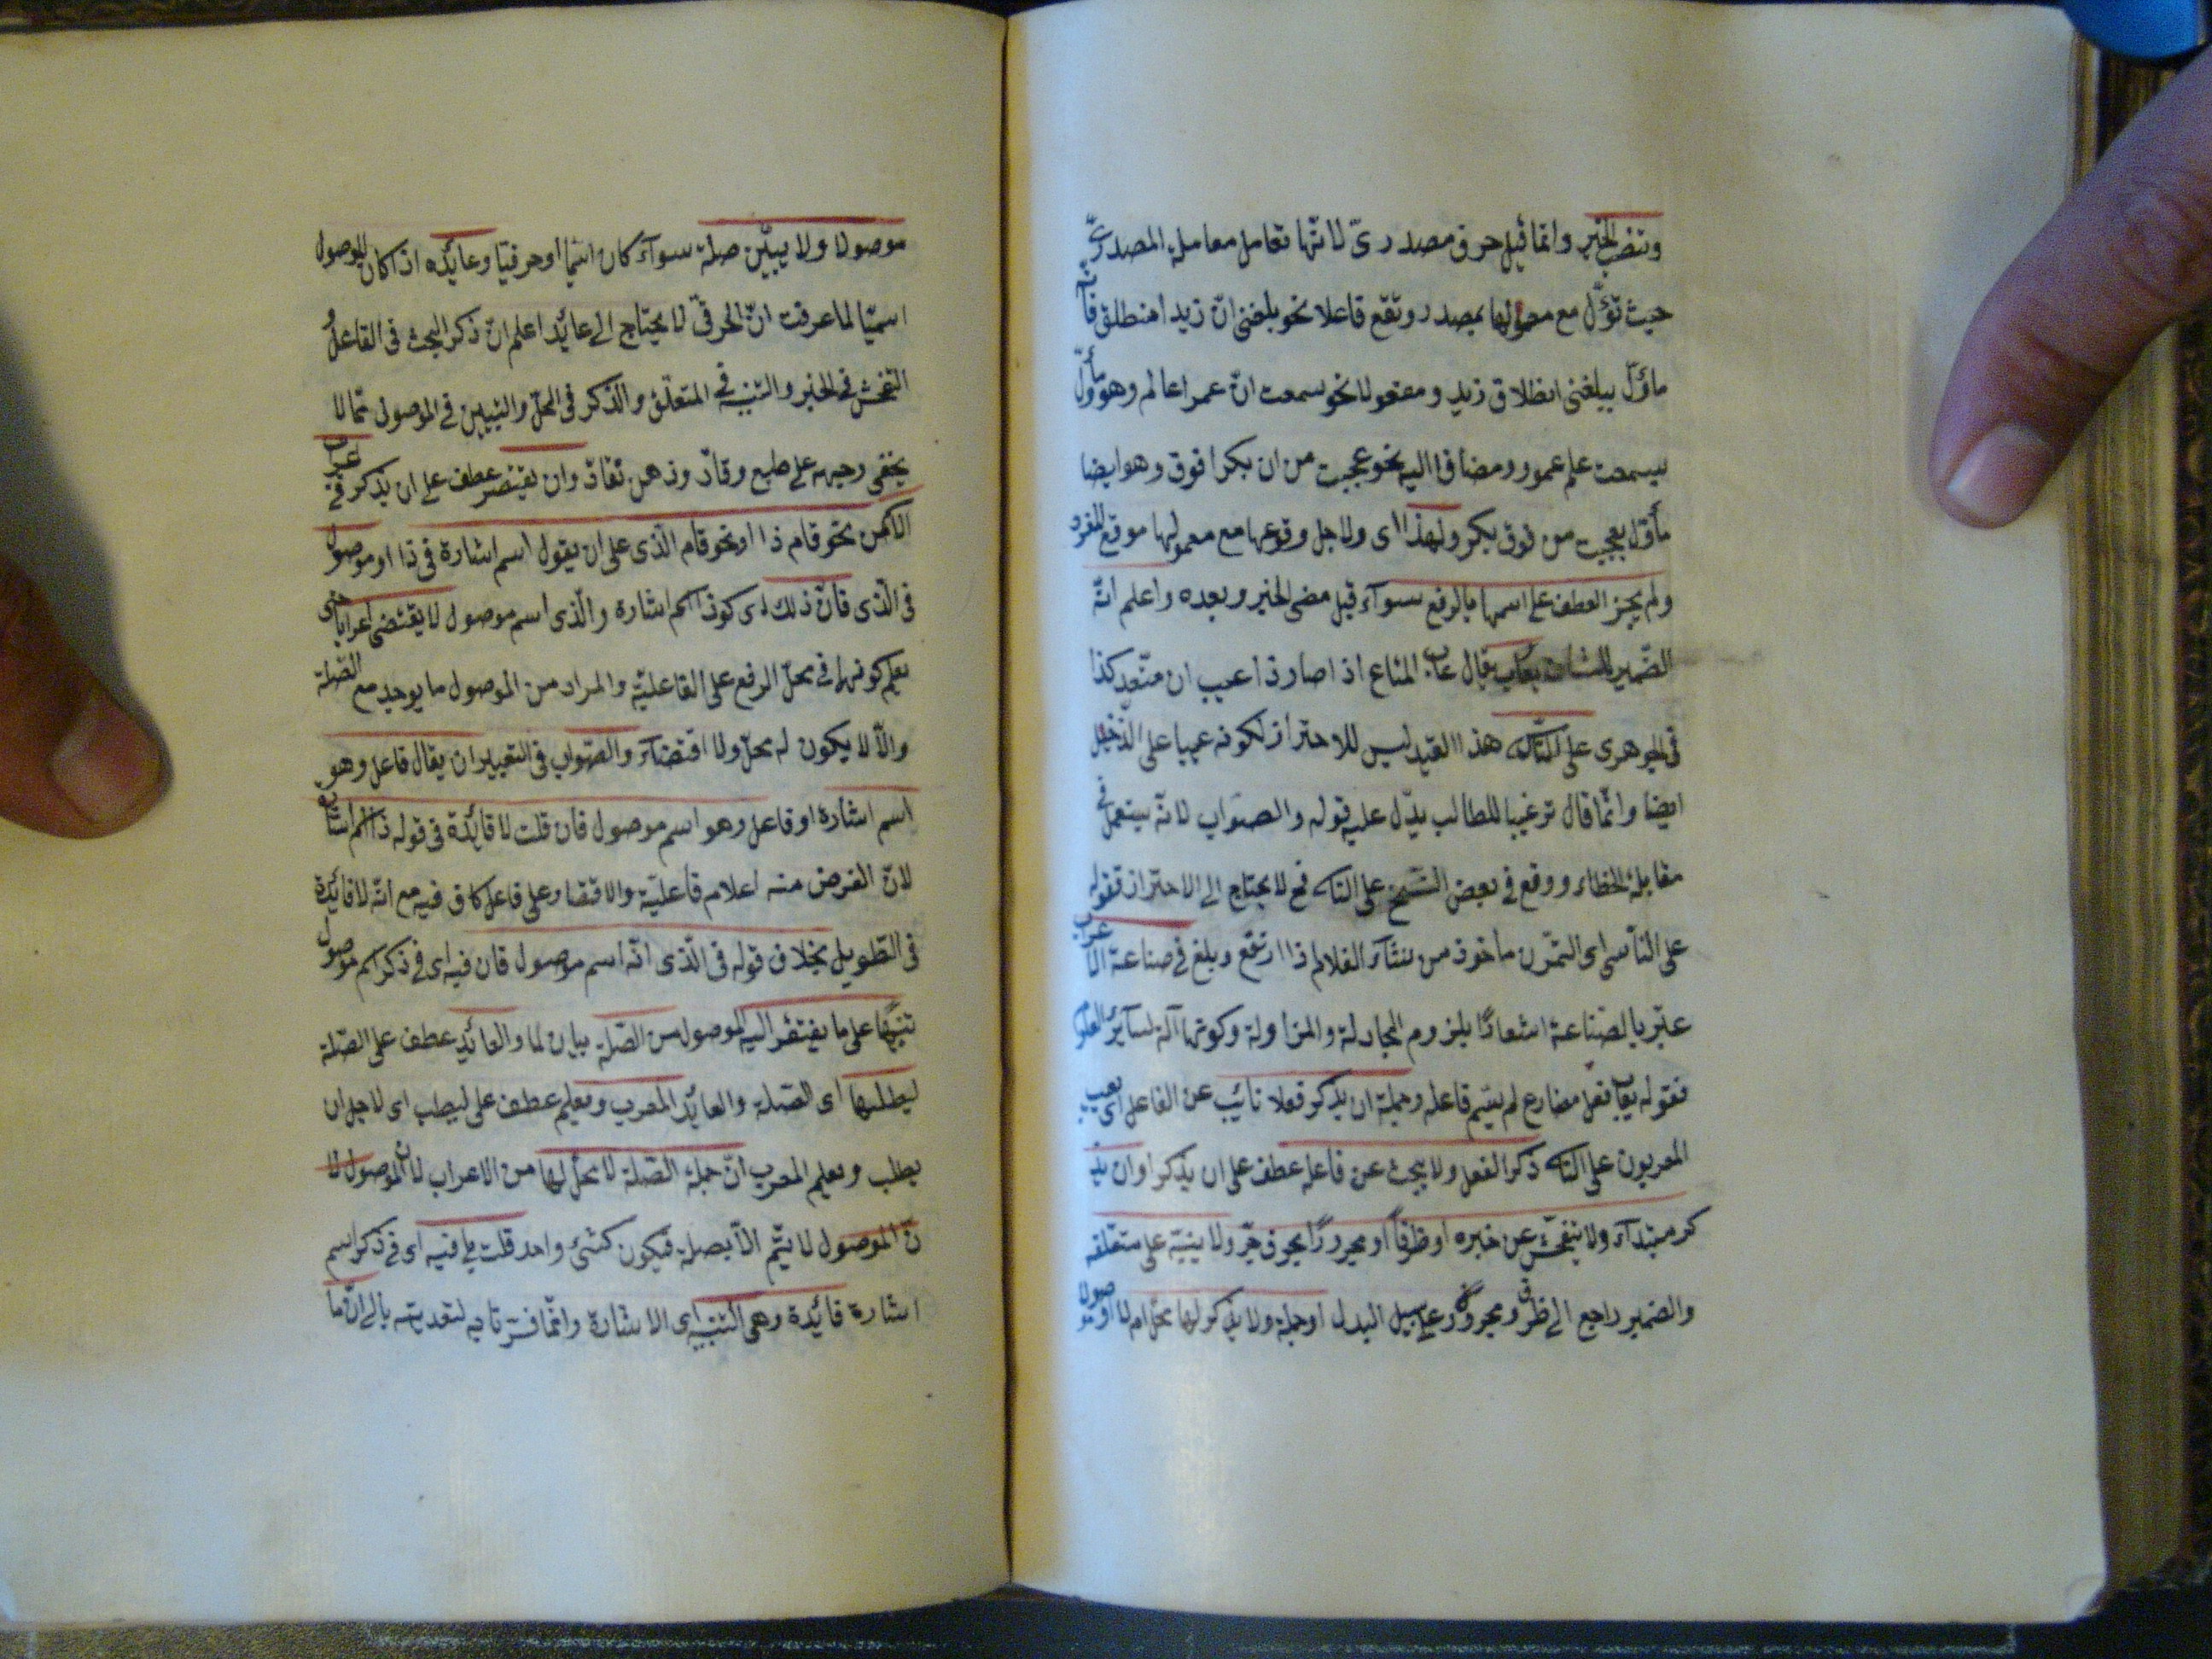 وتنصب الخبر وانما قيل حرف مصدرىّ لانّها تعامل معاملة المصدرىّ
حيث تؤَّل مع معمولها بمصدر وتقع فاعلا نحو بلغنى انّ زيدا منطلق فانّه
مأوّل ببلغنى انطلاق زيد ومفعولا نحو سمعت انّ عمرا عالم وهو مأوّل
بسمعت علم عمرو ومضافا اليه نحو عجبت من ان بكرا فوق وهو ايضا
مأوّل بعجبت من فوق بكر ولهذا اى ولاجل وقوعها مع معمولها موقع المفرد
ولم يجز العطف على اسمها بالرفع سوآء قبل مضى الخبر وبعده واعلم انّ
الضّمير للشان يعاب يقال عاب المتاع اذا صار ذا عيب ان متعد كذا
فى الجوهرى على النّاشى هذا القيد ليس للاحتراز لكونه عيبا على الدّخيل
ايضا وانّما قال ترغيبا للطالب يدّل عليه قوله والصّواب لانّه يستعمل فى
مقابلة الخطاء ووقع فى بعض النّسخ على الناس فح لا يحتاج الى الاحتراز فقوله
على النّاشى اى التمرّن مأخوذ من نشآء الغلام اذا ارتفع وبلغ فى صناعة الاعراب
عبّر بالصّناعة اشعارًا بلزوم المجادلة والمزاولة وكونها آلة لسآئر العلوم
فقوله يعاب فعل مضارع لم يسّم فاعله وجملة ان يذكر فعلا نائب عن الفاعل اى يعيب
المعربون على الناس ذكر الفعل ولا يبحث عن فاعله عطف على ان يذكر اوان يذ
كر مبتدآء ولا يتفحّش عن خبره او ظرفًا او مجرورًا بحرف جرّ ولا ينبّه على متعلّقه
والضمير راجع الى ظرف ومجرور على سبيل البدل او جملة ولا يذكر لها محلّ ام لا او موصول
موصولا ولا يبيّن صلة سوآء كان اسمّيا او حرفيّا وعائده اذا كان الموصول
اسميّا لما عرفت انّ الحرفىّ لا يحتاج الى عائد اعلم انّ ذكر البحث فى الفاعل و
التفحّش فى الخبر والتنبيه فى المتعلّق والذّكر فى المحلّ والتبيين فى الموصول ممّا لا
يخفى وجهه على طبع وقاد وذهن نقّاد وان يقتصر عطف على ان يذكر فى اعراب
الاسم من نحو قام ذا او نحو قام الّذى على ان يقول اسم اشارة فى ذا او موصول
فى الّذى فانّ ذلك اى كون ذا اسم اشارة والّذى اسم موصول لا يقتضى اعرابا حتى
يعلم كونهما فى محلّ الرفع على الفاعليّة والمراد من الموصول ما يوجد مع الصّلة
والّا لا يكون له محلّ ولا اقتضآء والصّواب فى التعبير ان يقال فاعل وهو
اسم اشارة او فاعل وهو اسم موصول فان قلت لا فائدة فى قوله ذا اسم اشارة
لانّ الغرض منه اعلام فاعليّة والاقتصار على فاعل كاف فيه مع انّه لا فائدة
فى التّطويل بخلاف قوله فى الّذى انّه اسم موصول فان فيه اى فى ذكر اسم موصول
تنبيها على ما يفتقر اليه الموصول من الصّلة بيان لما والعائد عطف على الصّلة
ليطلبها اى الصّلة والعائد المعرب وليعلم عطف على ليطلب اى لاجل ان
يطلب ويعلم المعرب انّ جملة الصّلة لا محلّ لها من الاعراب لانّ الموصول لا
نّ الموصول لا يتّم الّا بصلة فيكون كشئ واحد قلت بلى فيه اى فى ذكر اسم
اشارة فائدة وهى التّنبيه اى الاشارة وانّما فسرنا به لتعديته بالى انّ ما